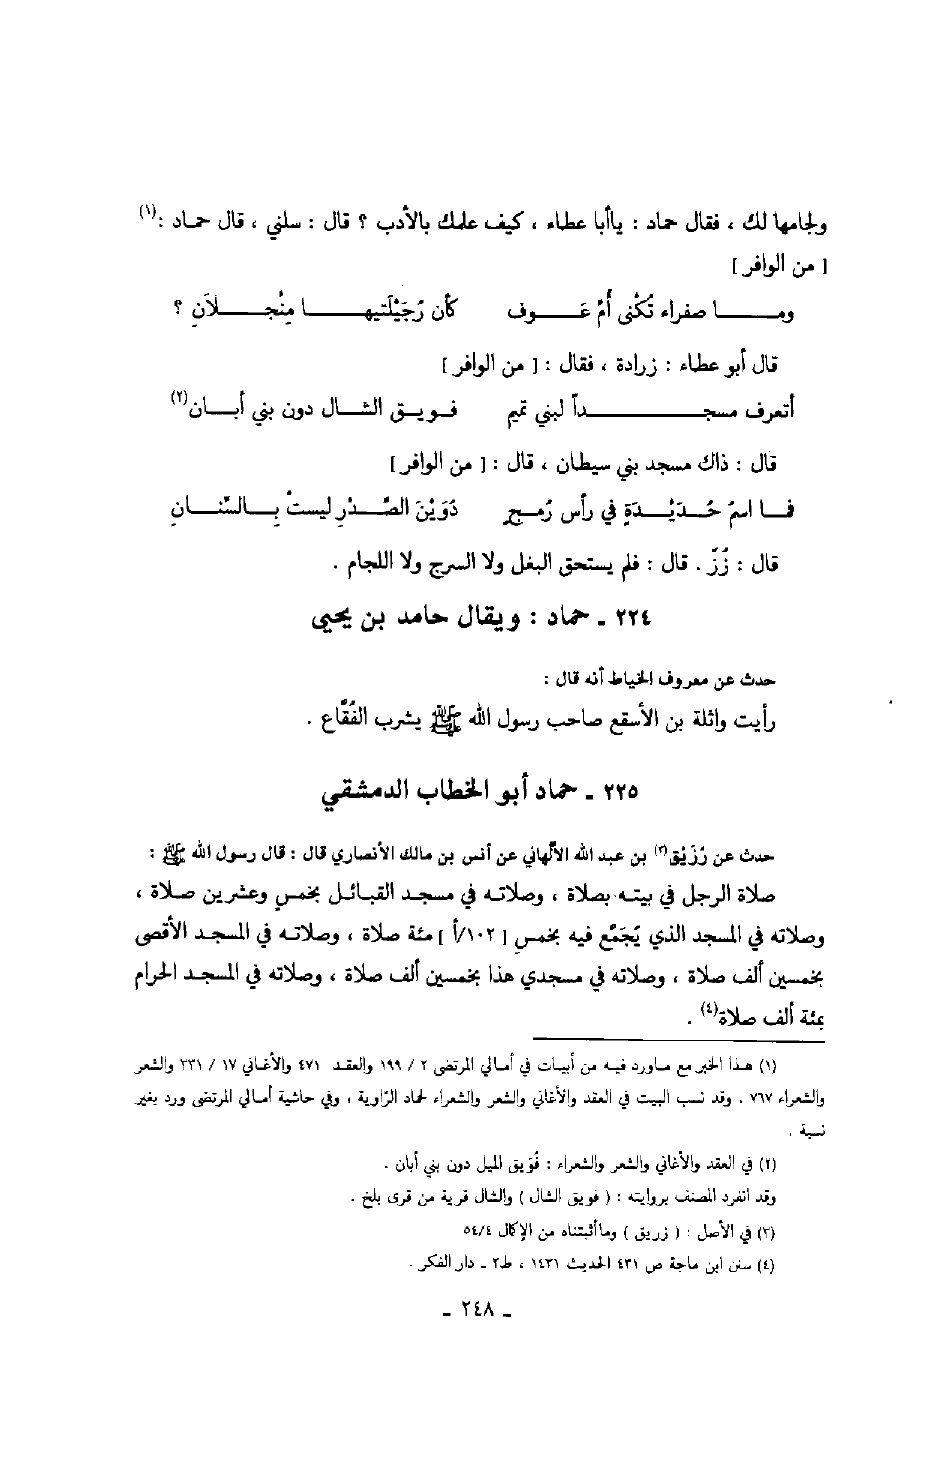 ولجامها لك ، فقال حماد : ياأبا عطاء ، كيف علمك بالأدب ؟ قال : سلني ، قال حماد :(١)
[ من الوافر ]
ومـــا صفراء تُكْنى أُمّ عَـــوف كأن رُجَيْلَتيهـــا مِنْجـــلاَنِ ؟
قال أبو عطاء : زرادة ، فقال : [ من الوافر ]
أتعرف مسجـــداً لبني تميم فـويـق الشـال دون بني أبـان(٢)
قال : ذاك مسجد بني سيطان ، قال : [ من الوافر ]
فـا اسمُ حُـدَيْـدَةٍ في رأس رُمـحٍ دُوَيْنَ الصَّـدْرِ ليستْ بِـالسِّنـانِ
قال : زُزّ . قال : فلم يستحق البغل ولا السرج ولا اللجام .
٢٢٤ ـ حماد : ويقال حامد بن يحيى
حدث عن معروف الخياط أنه قال :
رأيت واثلة بن الأسقع صاحب رسول الله ﷺ يشرب الفُقّاع .
٢٢٥ ـ حماد أبو الخطاب الدمشقي
حدث عن رُزَيْق(٣) بن عبد الله الألهاني عن أنس بن مالك الأنصاري قال : قال رسول الله ﷺ :
صلاة الرجل في بيته بصلاة ، وصلاته في مسجد القبائل بخمسٍ وعشرين صلاة ،
وصلاته في المسجد الذي يُجَمَّع فيه بخمسِ [ ١٠٢/أ ] مئة صلاة ، وصلاته في المسجد الأقصى
بخمسين ألف صلاة ، وصلاته في مسجدي هذا بخمسين ألف صلاة ، وصلاته في المسجد الحرام
بمئة ألف صلاة(٤) .
(١) هذا الخبر مع ماورد فيه من أبيات في أمالي المرتضى ٢ / ١٩٩ والعقد ٤٧١ والأغاني ١٧ / ٢٣١ والشعر
والشعراء ٧٦٧ . وقد نسب البيت في العقد والأغاني والشعر والشعراء لحماد الرّاوية ، وفي حاشية أمالي المرتضى ورد بغير
نسبة .
(٢) في العقد والأغاني والشعر والشعراء : فُوَيق الميل دون بني أبان .
وقد انفرد المصنف بروايته : ( فويق الشال ) والشال قرية من قرى بلخ .
(٣) في الأصل : ( زريق ) وماأثبتناه من الإكمال ٥٤/٤
(٤) سنن ابن ماجة ص ٤٣١ الحديث ١٤٣١ ، ط٢ ـ دار الفكر .
ـ ٢٤٨ ـ